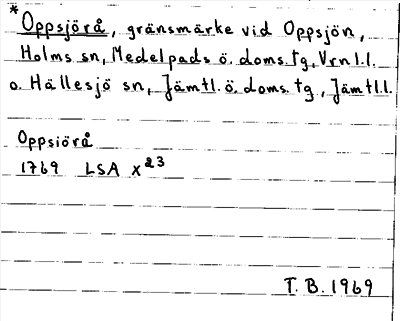 *Oppsjörå, gränsmärke vid Oppsjön,
Holms sn, Medelpads ö. doms. tg, Vrnl.l.
o. Hällesjö sn, Jämtl. ö. doms. tg, Jämtl.l.
Oppsiörå
1769 LSA x23
T. B. 1969